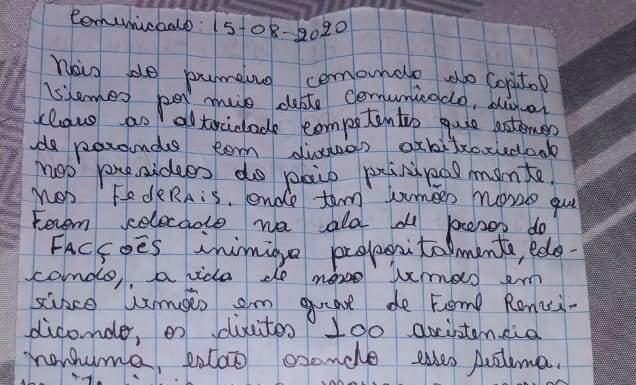 Comunicado: 15-08-2020
Nois do primeiro comando do Capital
Viemos por meio deste Comunicado, deixar
claro as altoridade competentes que estamos
de parando com diversas arbitrariedade
nos presideos do pais prisipalmente.
Nos FedeRAis. onde tem irmões nosso que
Foram colocado na ala de presos de
FACÇOÊS inimiga propositalmente, colo-
cando, a vida de nosso irmãos em
risco irmões em greve de Fome Renvi-
dicando, os direitos 100 asistencia
nenhuma, estão osando esses sistema.